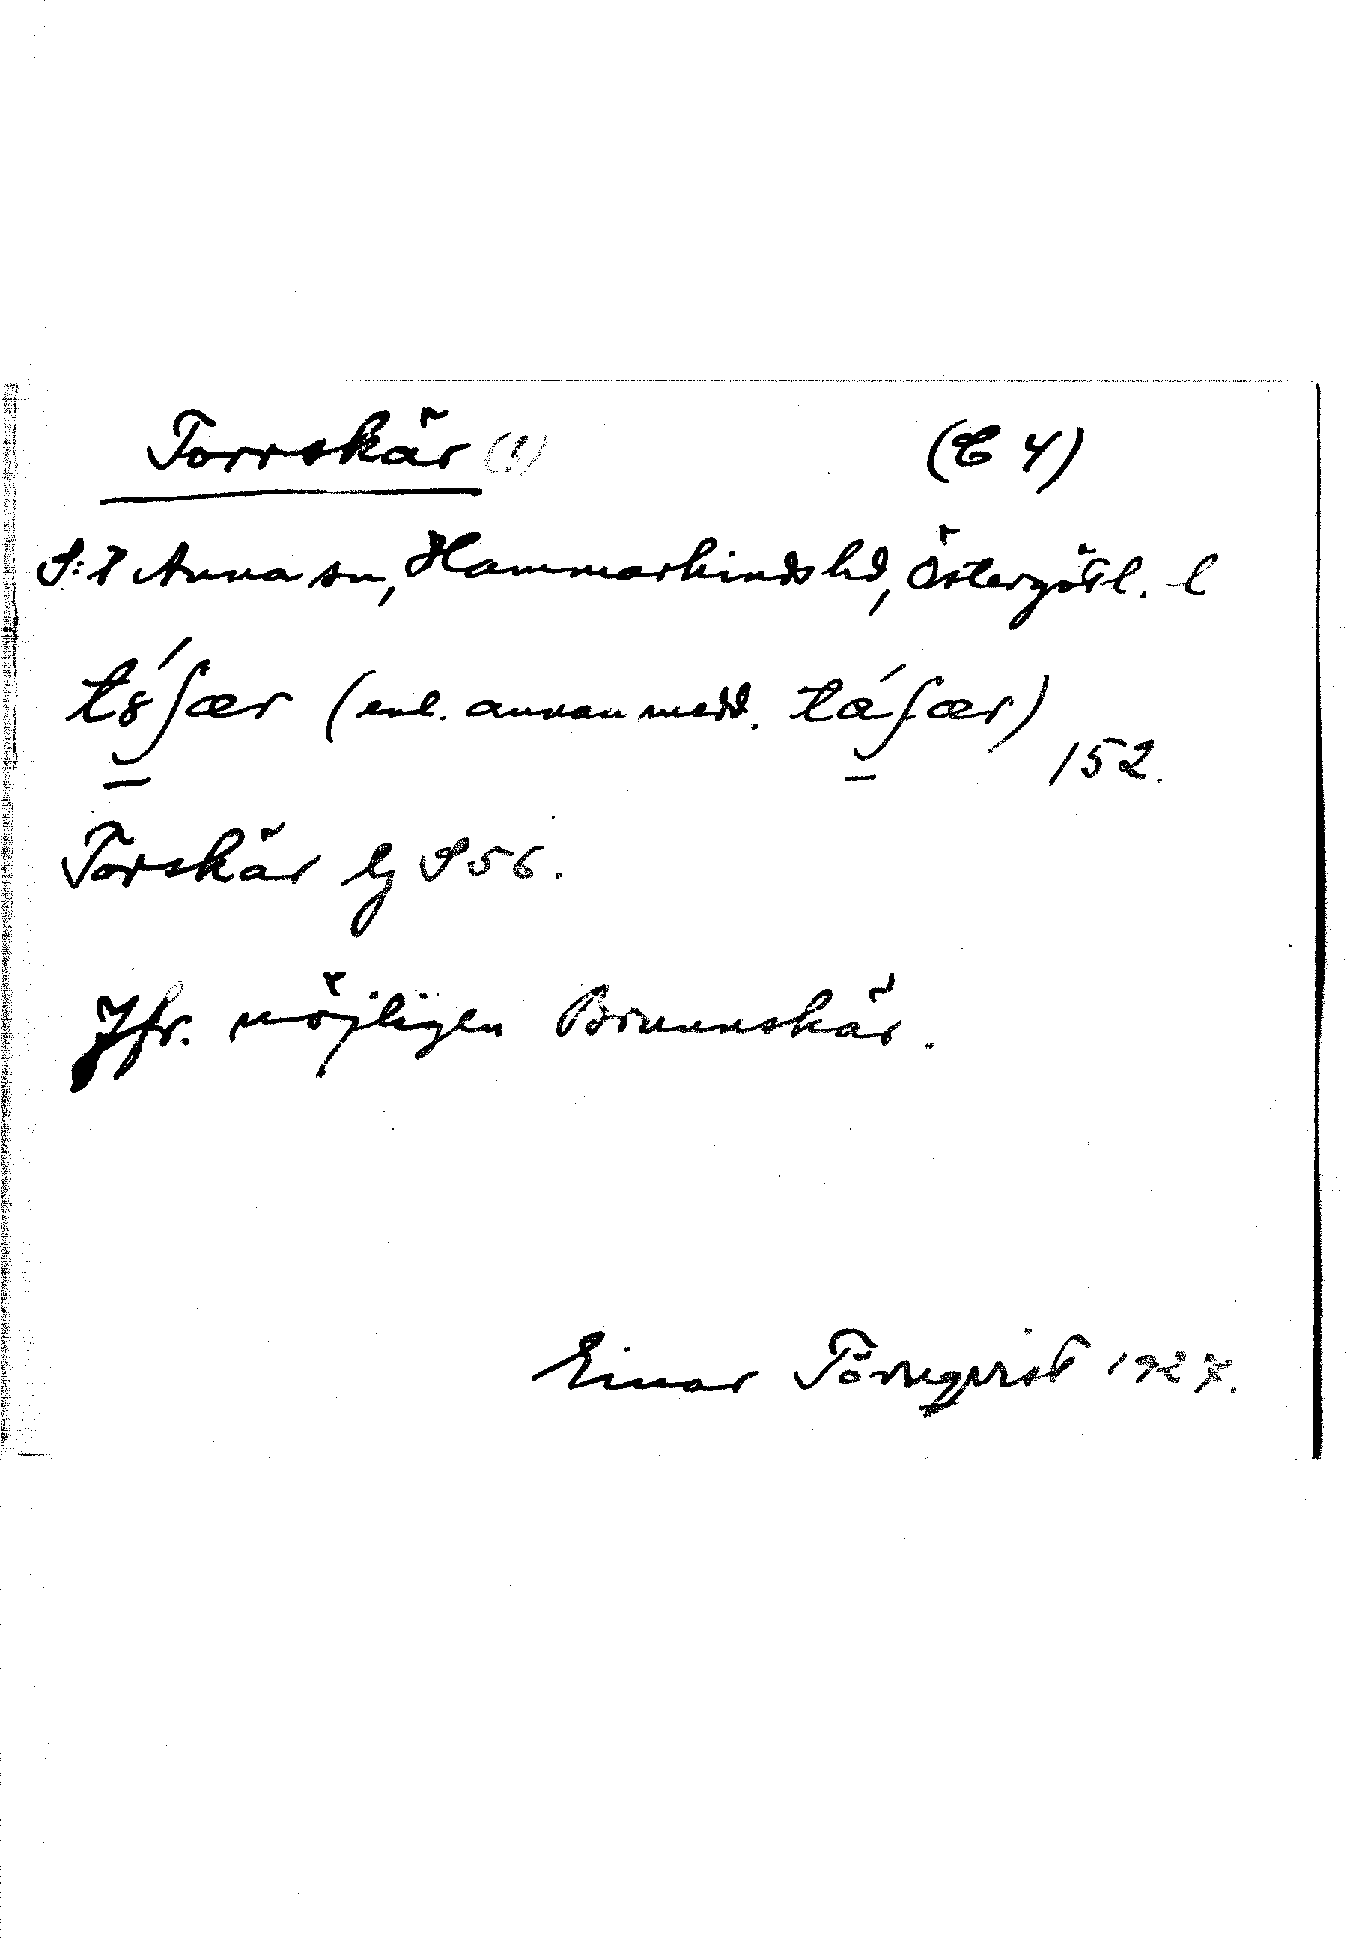 Torrskär (1) (E 4)
S:t Anna sn, Hammarkinds hd, Östergötl. l
tó̱ʃær (enl. annan medd. táʃær)
152.
Torskär lg S56.
Jfr. möjligen Brunnskär.
Einar Törnqvist 1927.